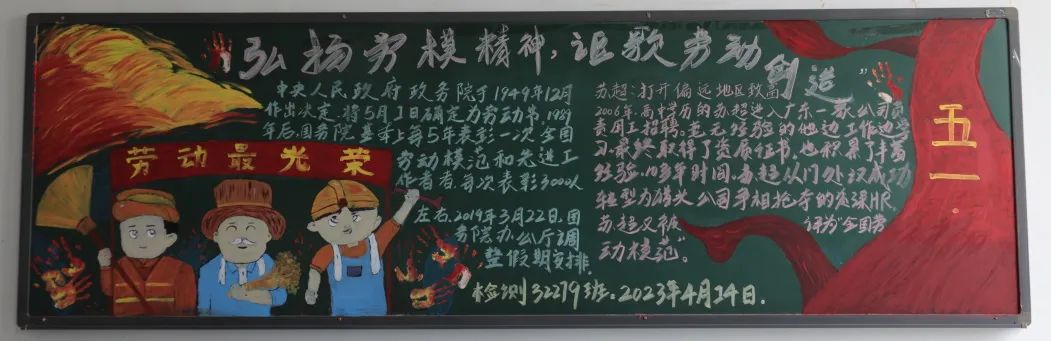 弘扬劳模精神，讴歌劳动创造
中央人民政府政务院于1949年12月
作出决定，将5月1日确定为劳动节，1989
年后，国务院基本上每5年表彰一次全国
劳动模范和先进工
作者，每次表彰3000人
左右。2019年3月22日，国
务院办公厅调
整假期安排。
劳动最光荣
苏超：打开偏远地区致富
2006年，高中学历的苏超进入广东一家公司负
责用工招聘。毫无经验的他边工作边学
习，最终取得了资质证书，也积累了丰富
经验。10多年时间，苏超从门外汉成功
转型为猎头公司争相抢夺的资深HR，
苏超又被评为“全国劳
动模范”。
五一
检测32279班。2023年4月24日.